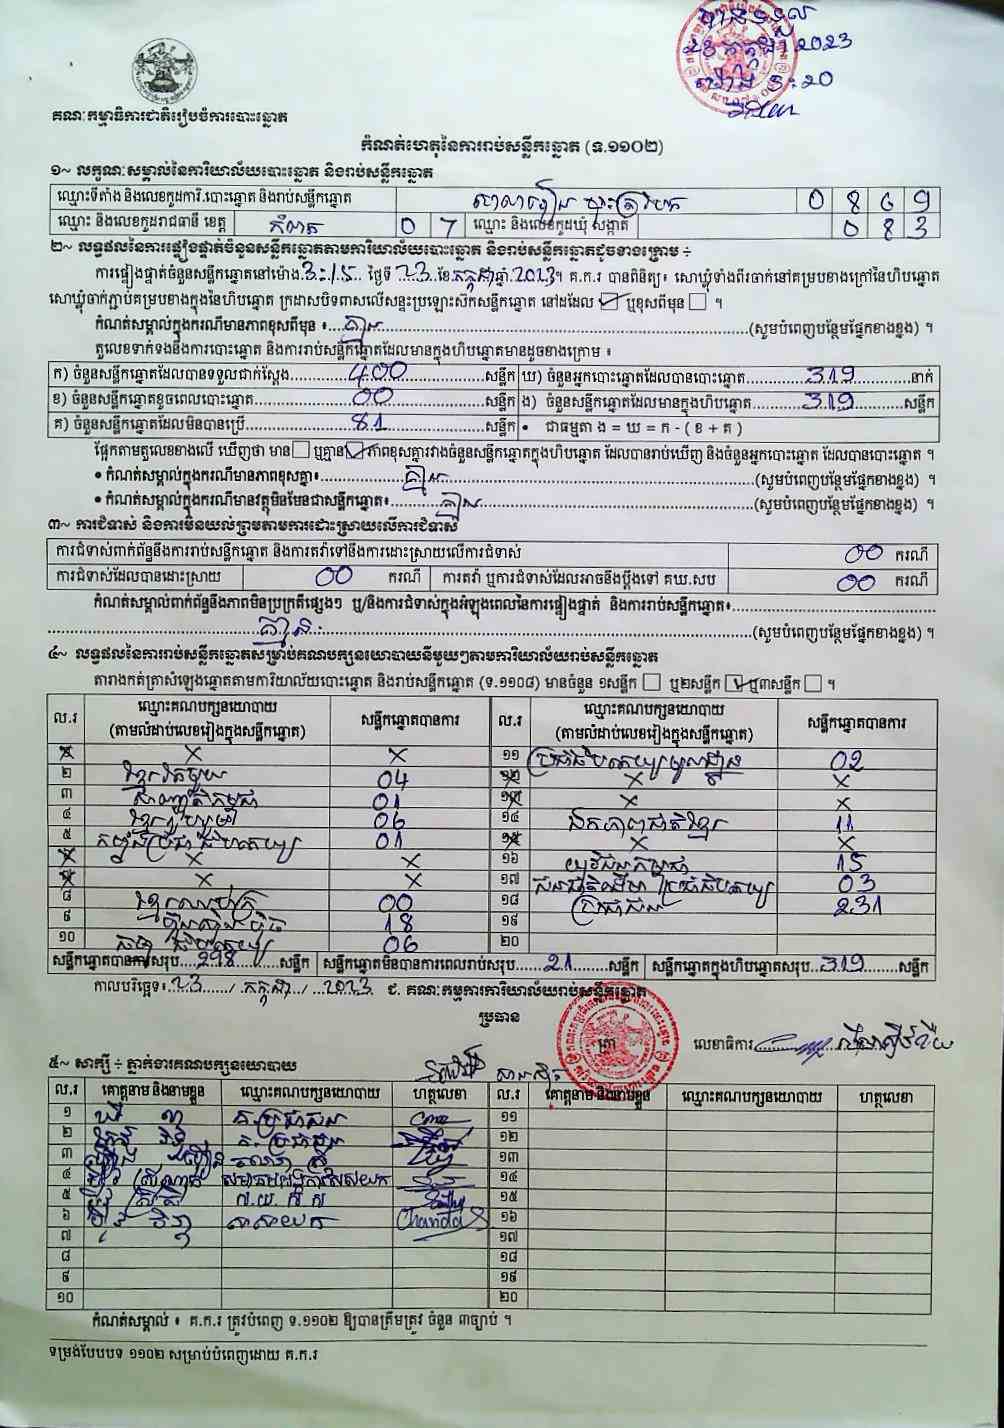 បានទទួល
23 កក្កដា 2023
ម៉ោង
គណៈកម្មាធិការជាតិរៀបចំការបោះឆ្នោត
កំណត់ហេតុនៃការរាប់សន្លឹកឆ្នោត (ទ.១១០២)
១~ លក្ខណៈសម្គាល់នៃការិយាល័យបោះឆ្នោត និងរាប់សន្លឹកឆ្នោត
ឈ្មោះទីតាំង និងលេខកូដការិ.បោះឆ្នោត និងរាប់សន្លឹកឆ្នោត សាលារៀន 0 8 6 9
ឈ្មោះ និងលេខកូដរាជធានី ខេត្ត កំពត 0 7 ឈ្មោះ និងលេខកូដឃុំ សង្កាត់ 0 8 3
២~ លទ្ធផលនៃការផ្ទៀងផ្ទាត់ចំនួនសន្លឹកឆ្នោតតាមការិយាល័យបោះឆ្នោត និងរាប់សន្លឹកឆ្នោតដូចខាងក្រោម ÷
ការផ្ទៀងផ្ទាត់ចំនួនសន្លឹកឆ្នោតនៅម៉ោង 3:15 ថ្ងៃទី 23 ខែ កក្កដា ឆ្នាំ 2023។ គ.ក.រ បានពិនិត្យ៖ សោឃ្លុំទាំងពីរចាក់នៅគម្របខាងក្រៅនៃហិបឆ្នោត
សោឃ្លុំចាក់ភ្ជាប់គម្របខាងក្នុងនៃហិបឆ្នោត ក្រដាសបិទពាសលើសន្ទះប្រឡោះស៊កសន្លឹកឆ្នោត នៅដដែល ✓ ឬខុសពីមុន ☐ ។
កំណត់សម្គាល់ក្នុងករណីមានភាពខុសពីមុន ៖ គ្មាន (សូមបំពេញបន្ថែមផ្នែកខាងខ្នង) ។
តួលេខទាក់ទងនឹងការបោះឆ្នោត និងការរាប់សន្លឹកឆ្នោតដែលមានក្នុងហិបឆ្នោតមានដូចខាងក្រោម ៖
ក) ចំនួនសន្លឹកឆ្នោតដែលបានទទួលជាក់ស្តែង 400 សន្លឹក ឃ) ចំនួនអ្នកបោះឆ្នោតដែលបានបោះឆ្នោត 319 នាក់
ខ) ចំនួនសន្លឹកឆ្នោតខូចពេលបោះឆ្នោត 00 សន្លឹក ង) ចំនួនសន្លឹកឆ្នោតដែលមានក្នុងហិបឆ្នោត 319 សន្លឹក
គ) ចំនួនសន្លឹកឆ្នោតដែលមិនបានប្រើ 81 សន្លឹក • ជាធម្មតា ង = ឃ = ក - ( ខ + គ )
ផ្អែកតាមតួលេខខាងលើ ឃើញថា មាន ☐ ឬគ្មាន ✓ ភាពខុសគ្នារវាងចំនួនសន្លឹកឆ្នោតក្នុងហិបឆ្នោត ដែលបានរាប់ឃើញ និងចំនួនអ្នកបោះឆ្នោត ដែលបានបោះឆ្នោត ។
• កំណត់សម្គាល់ក្នុងករណីមានភាពខុសគ្នា៖ គ្មាន (សូមបំពេញបន្ថែមផ្នែកខាងខ្នង) ។
• កំណត់សម្គាល់ក្នុងករណីមានវត្ថុមិនមែនជាសន្លឹកឆ្នោត៖ គ្មាន (សូមបំពេញបន្ថែមផ្នែកខាងខ្នង) ។
៣~ ការជំទាស់ និងការមិនយល់ព្រមតាមការដោះស្រាយលើការជំទាស់
ការជំទាស់ពាក់ព័ន្ធនឹងការរាប់សន្លឹកឆ្នោត និងការតវ៉ាទៅនឹងការដោះស្រាយលើការជំទាស់ 00 ករណី
ការជំទាស់ដែលបានដោះស្រាយ 00 ករណី ការតវ៉ា ឬការជំទាស់ដែលអាចនឹងប្តឹងទៅ គឃ.សប 00 ករណី
កំណត់សម្គាល់ពាក់ព័ន្ធនឹងភាពមិនប្រក្រតីផ្សេងៗ ឬ/និងការជំទាស់ក្នុងអំឡុងពេលនៃការផ្ទៀងផ្ទាត់ និងការរាប់សន្លឹកឆ្នោត៖
គ្មាន (សូមបំពេញបន្ថែមផ្នែកខាងខ្នង) ។
៤~ លទ្ធផលនៃការរាប់សន្លឹកឆ្នោតសម្រាប់គណបក្សនយោបាយនីមួយៗតាមការិយាល័យរាប់សន្លឹកឆ្នោត
តារាងកត់ត្រាសំឡេងឆ្នោតតាមការិយាល័យបោះឆ្នោត និងរាប់សន្លឹកឆ្នោត (ទ.១១០៨) មានចំនួន ១សន្លឹក ☐ ឬ២សន្លឹក ✓ ឬ៣សន្លឹក ☐ ។
ល.រ ឈ្មោះគណបក្សនយោបាយ (តាមលំដាប់លេខរៀងក្នុងសន្លឹកឆ្នោត) សន្លឹកឆ្នោតបានការ ល.រ ឈ្មោះគណបក្សនយោបាយ (តាមលំដាប់លេខរៀងក្នុងសន្លឹកឆ្នោត) សន្លឹកឆ្នោតបានការ
១ X X ១១ ប្រជាធិបតេយ្យមូលដ្ឋាន 02
២ ខ្មែររួបរួម 04 ១២ X X
៣ សញ្ជាតិកម្ពុជា 01 ១៣ X X
៤ ខ្មែរ 06 ១៤ ឯកភាពជាតិខ្មែរ 11
៥ កម្លាំងប្រជាធិបតេយ្យ 01 ១៥ X X
៦ X X ១៦ យុវជនកម្ពុជា 15
៧ X X ១៧ ប្រជាធិបតេយ្យ 03
៨ ខ្មែរ 00 ១៨ ប្រជាជន 231
៩ ហ្វ៊ុនស៊ិនប៉ិច 18 ១៩
១០ ធិបតេយ្យ 06 ២០
សន្លឹកឆ្នោតបានការសរុប 298 សន្លឹក សន្លឹកឆ្នោតមិនបានការពេលរាប់សរុប 21 សន្លឹក សន្លឹកឆ្នោតក្នុងហិបឆ្នោតសរុប 319 សន្លឹក
កាលបរិច្ឆេទ៖ 23 / កក្កដា / 2023 ជ. គណៈកម្មការការិយាល័យរាប់សន្លឹកឆ្នោត
ប្រធាន
ត្រា លេខាធិការ
៥~ សាក្សី ÷ ភ្នាក់ងារគណបក្សនយោបាយ
ល.រ គោត្តនាម និងនាមខ្លួន ឈ្មោះគណបក្សនយោបាយ ហត្ថលេខា ល.រ គោត្តនាម និងនាមខ្លួន ឈ្មោះគណបក្សនយោបាយ ហត្ថលេខា
១ គ.ប្រជាជន ១១
២ គ.ប្រជាជន ១២
៣ ១៣
៤ ១៤
៥ ១៥
៦ Chanda ១៦
៧ ១៧
៨ ១៨
៩ ១៩
១០ ២០
កំណត់សម្គាល់ ៖ គ.ក.រ ត្រូវបំពេញ ទ.១១០២ ឱ្យបានត្រឹមត្រូវ ចំនួន ៣ច្បាប់ ។
ទម្រង់បែបបទ ១១០២ សម្រាប់បំពេញដោយ គ.ក.រ